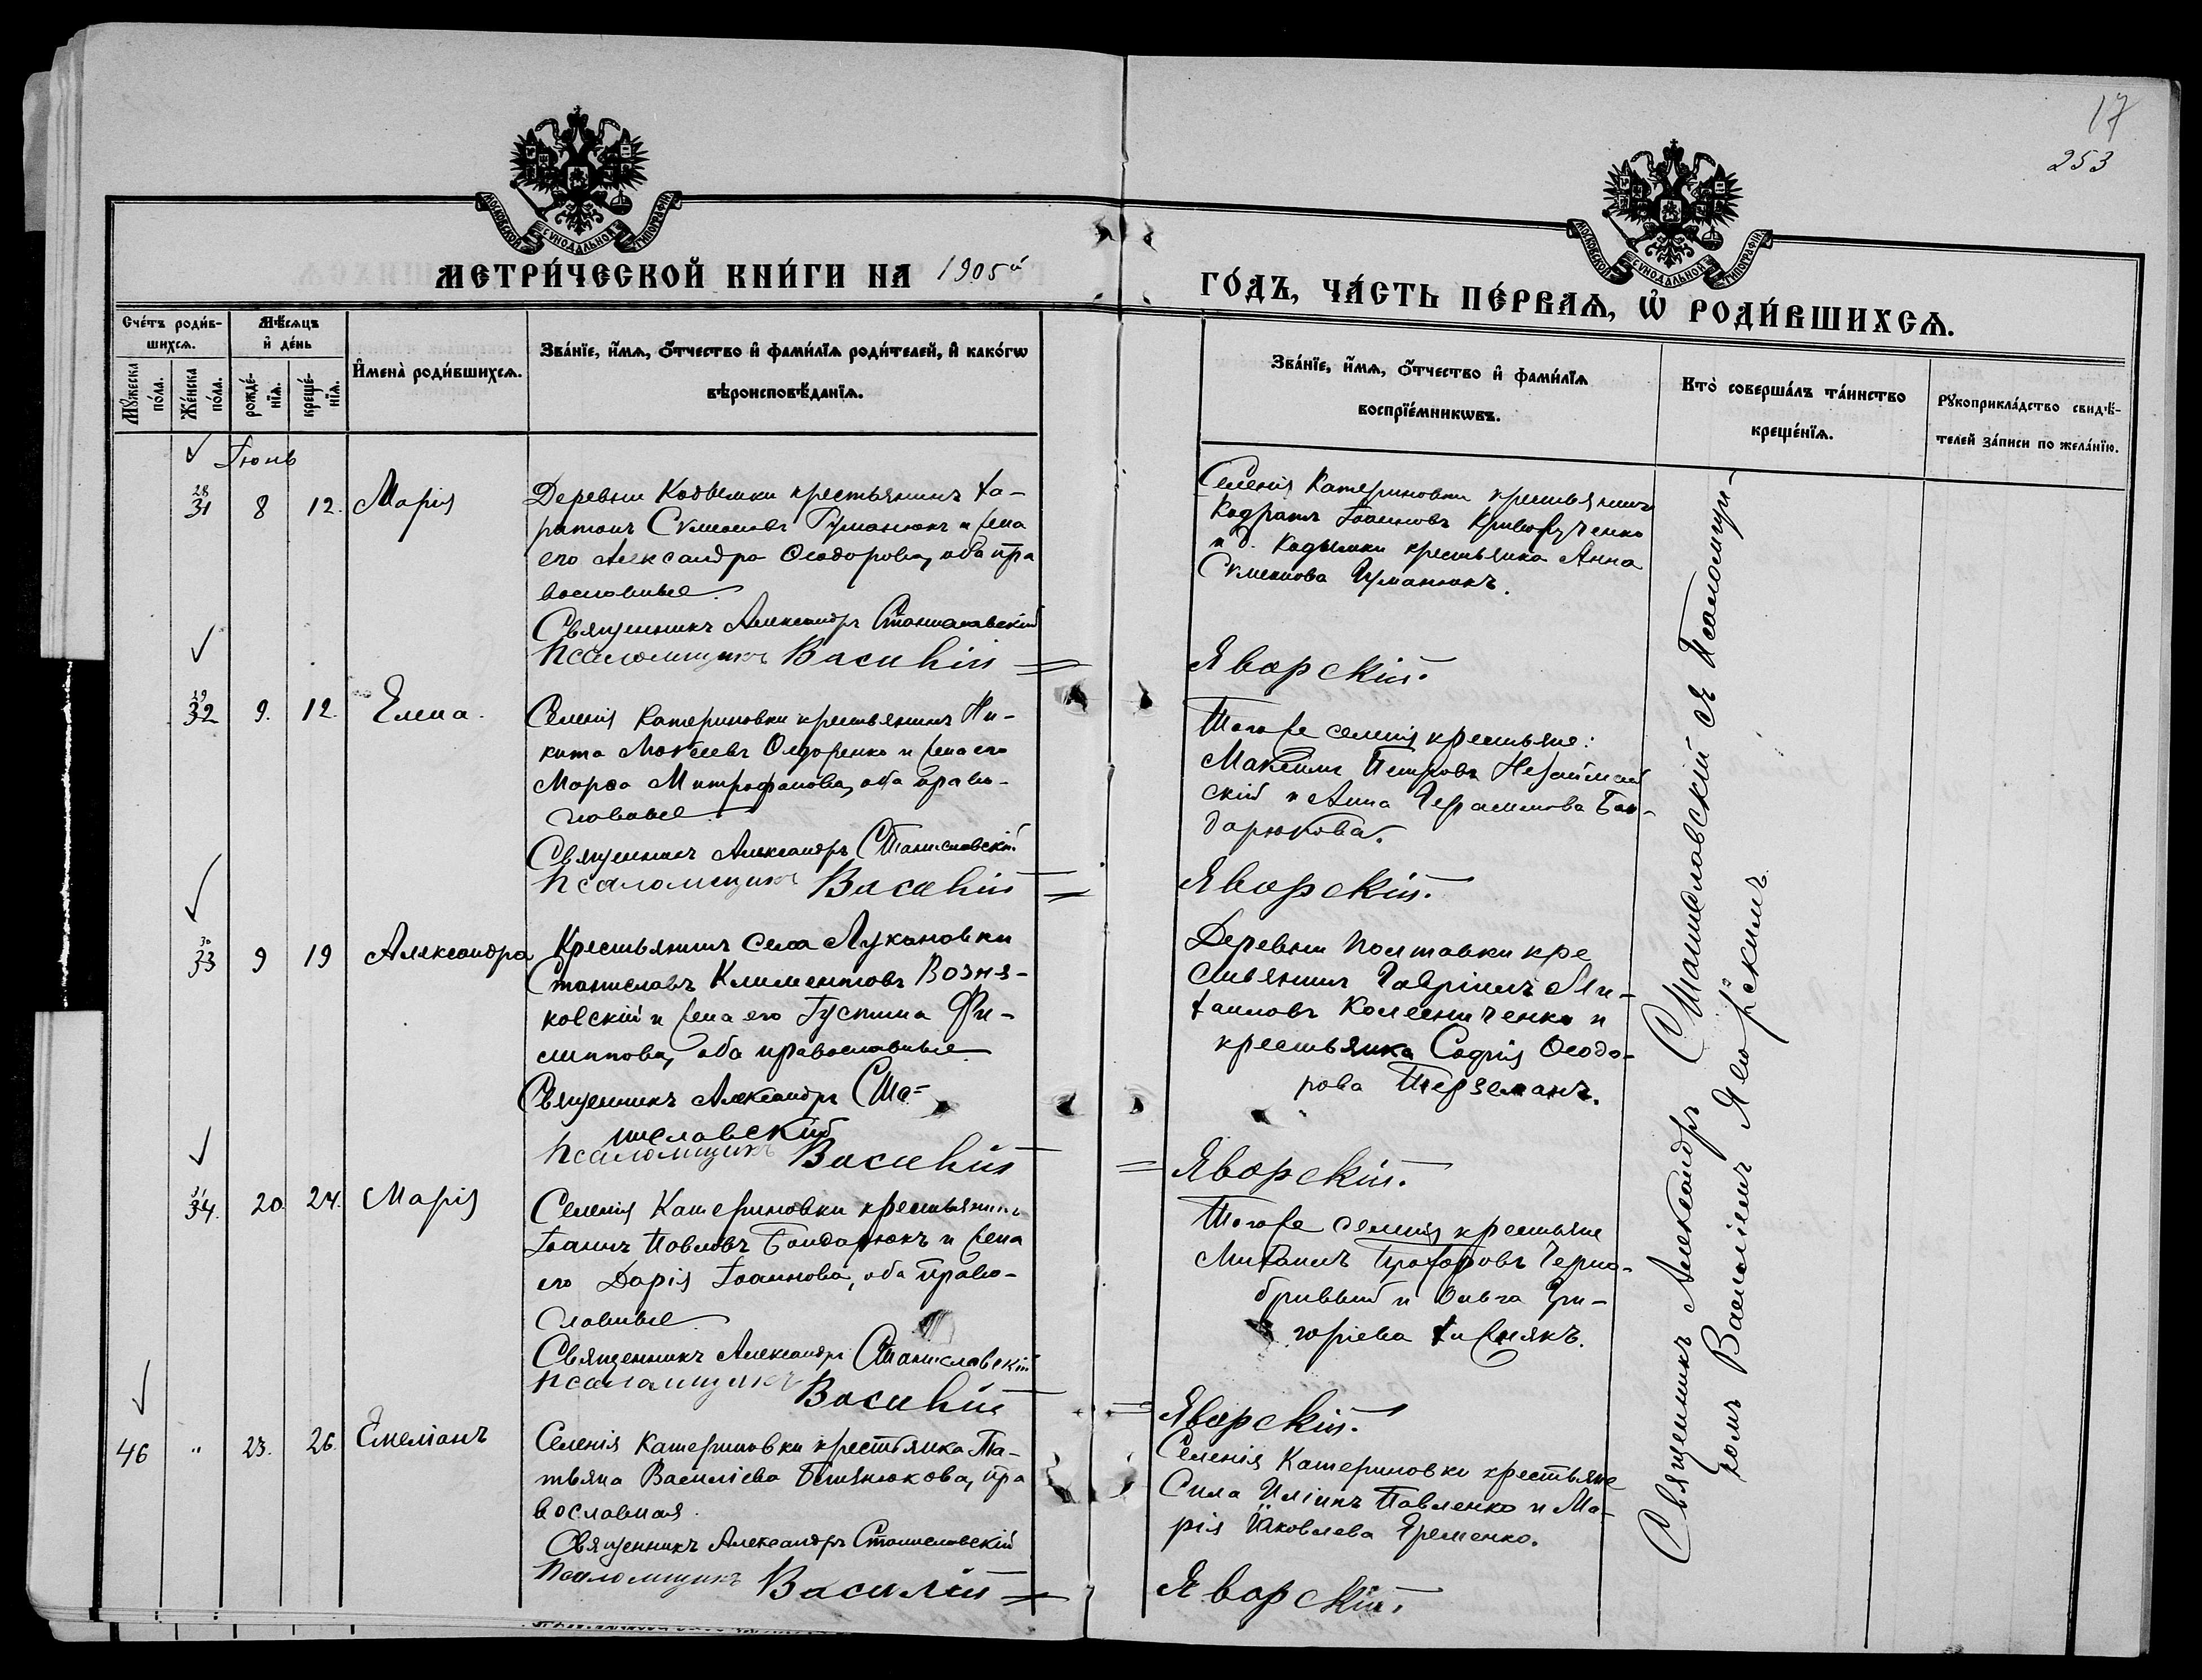 17
253
МОСКОВСКОЙ СѴНОДАЛЬНОЙ ТИПОГРАФІИ
МОСКОВСКОЙ СѴНОДАЛЬНОЙ ТИПОГРАФІИ
МЕТРИ́ЧЕСКОЙ КНИ́ГИ НА 1905й
ГО́ДЪ, ЧА́СТЬ ПЕ́РВАѦ, Ѡ РОДИ́ВШИХСѦ.
Сче́тъ роди́в-
шихсѧ.
Мꙋ́жеска по́ла.
Же́нска по́ла.
Мѣ́сѧцъ
и҆ де́нь
рожде́-
нїѧ.
креще́-
нїѧ.
И҆мена̀ роди́вшихсѧ.
Зва́нїе, и҆́мѧ, ѻ҆́тчество и҆ фами́лїѧ роди́телей, и҆ како́гѡ
вѣроисповѣ́данїѧ.
Зва́нїе, и҆́мѧ, ѻ҆́тчество и҆ фами́лїѧ
воспрїе́мникѡвъ.
Кто̀ соверша́лъ та́инство
креще́нїѧ.
Рꙋкоприкла́дство свидѣ́-
телей за́писи по жела́нїю.
Іюнь
28
31 8 12. Марія
Деревни Кодымки крестьянинъ Ха-
ритонъ Сѵмеоновъ Гуманюкъ и жена
его Александра Ѳеодорова, оба пра
вославные.
Священникъ Александръ Станиславскій
Псаломщикъ Василій
Селенія Катериновки крестьянинъ
Кодратъ Іоанновъ Криворученко
и д. Кодымки крестьянка Анна
Сѵмеонова Гуманюкъ.
Яворскій.
29
32 9. 12. Елена.
Селенія Катериновки крестьянинъ Ни-
кита Моѵсеевъ Ѳедоренко и жена его
Марѳа Митрофанова, оба право-
славные.
Священникъ Александръ Станиславскій
Псаломщикъ Василій
Тогоже селенія крестьяне:
Максимъ Петровъ
скій и Анна Герасимова Бон-
дарюкова.
Яворскій.
30
33 9 19 Александра
Крестьянинъ села Лукановки
Станиславъ Климентовъ Возня-
ковскій и жена его Іустина Фи-
липпова, оба православные.
Священникъ Александръ Ста=
ниславскій
Псаломщикъ Василій
Деревни Полтавки кре
стьянинъ Гавріилъ Ми-
хаиловъ Колесниченко и
крестьянка Софія Ѳеодо-
рова Терземанъ.
Яворскій.
31
34. 20. 24. Марія
Селенія Катериновки крестьянинъ
Іоаннъ Павловъ Бондарюкъ и жена
его Дарія Іоаннова, оба право-
славные.
Священникъ Александръ Станиславскій
Псаломщикъ Василій
Тогоже селенія крестьяне
Михаилъ Прохоровъ Черно-
бривый и Ольга Гри-
горіева Хижнякъ.
Яворскій.
46 " 23. 26. Емеліанъ
Селенія Катериновки крестьянка Та-
тьяна Василіева, пра
вославная.
Священникъ Александръ Станиславскій
Псаломщикъ Василій
Селенія Катериновки крестьяне
Сила Иліинъ Павленко и Ма-
рія Іаковлева Яременко.
Яворскій.
Священникъ Александръ Станиславскій съ Псаломщи-
комъ Василіемъ Яворскимъ.